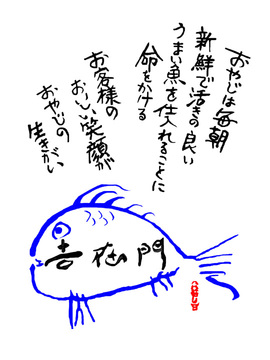 おやじは毎朝
新鮮で活きの良い
うまい魚を仕入れることに
命をかける
お客様の
おいしい笑顔が
おやじの
生きがい